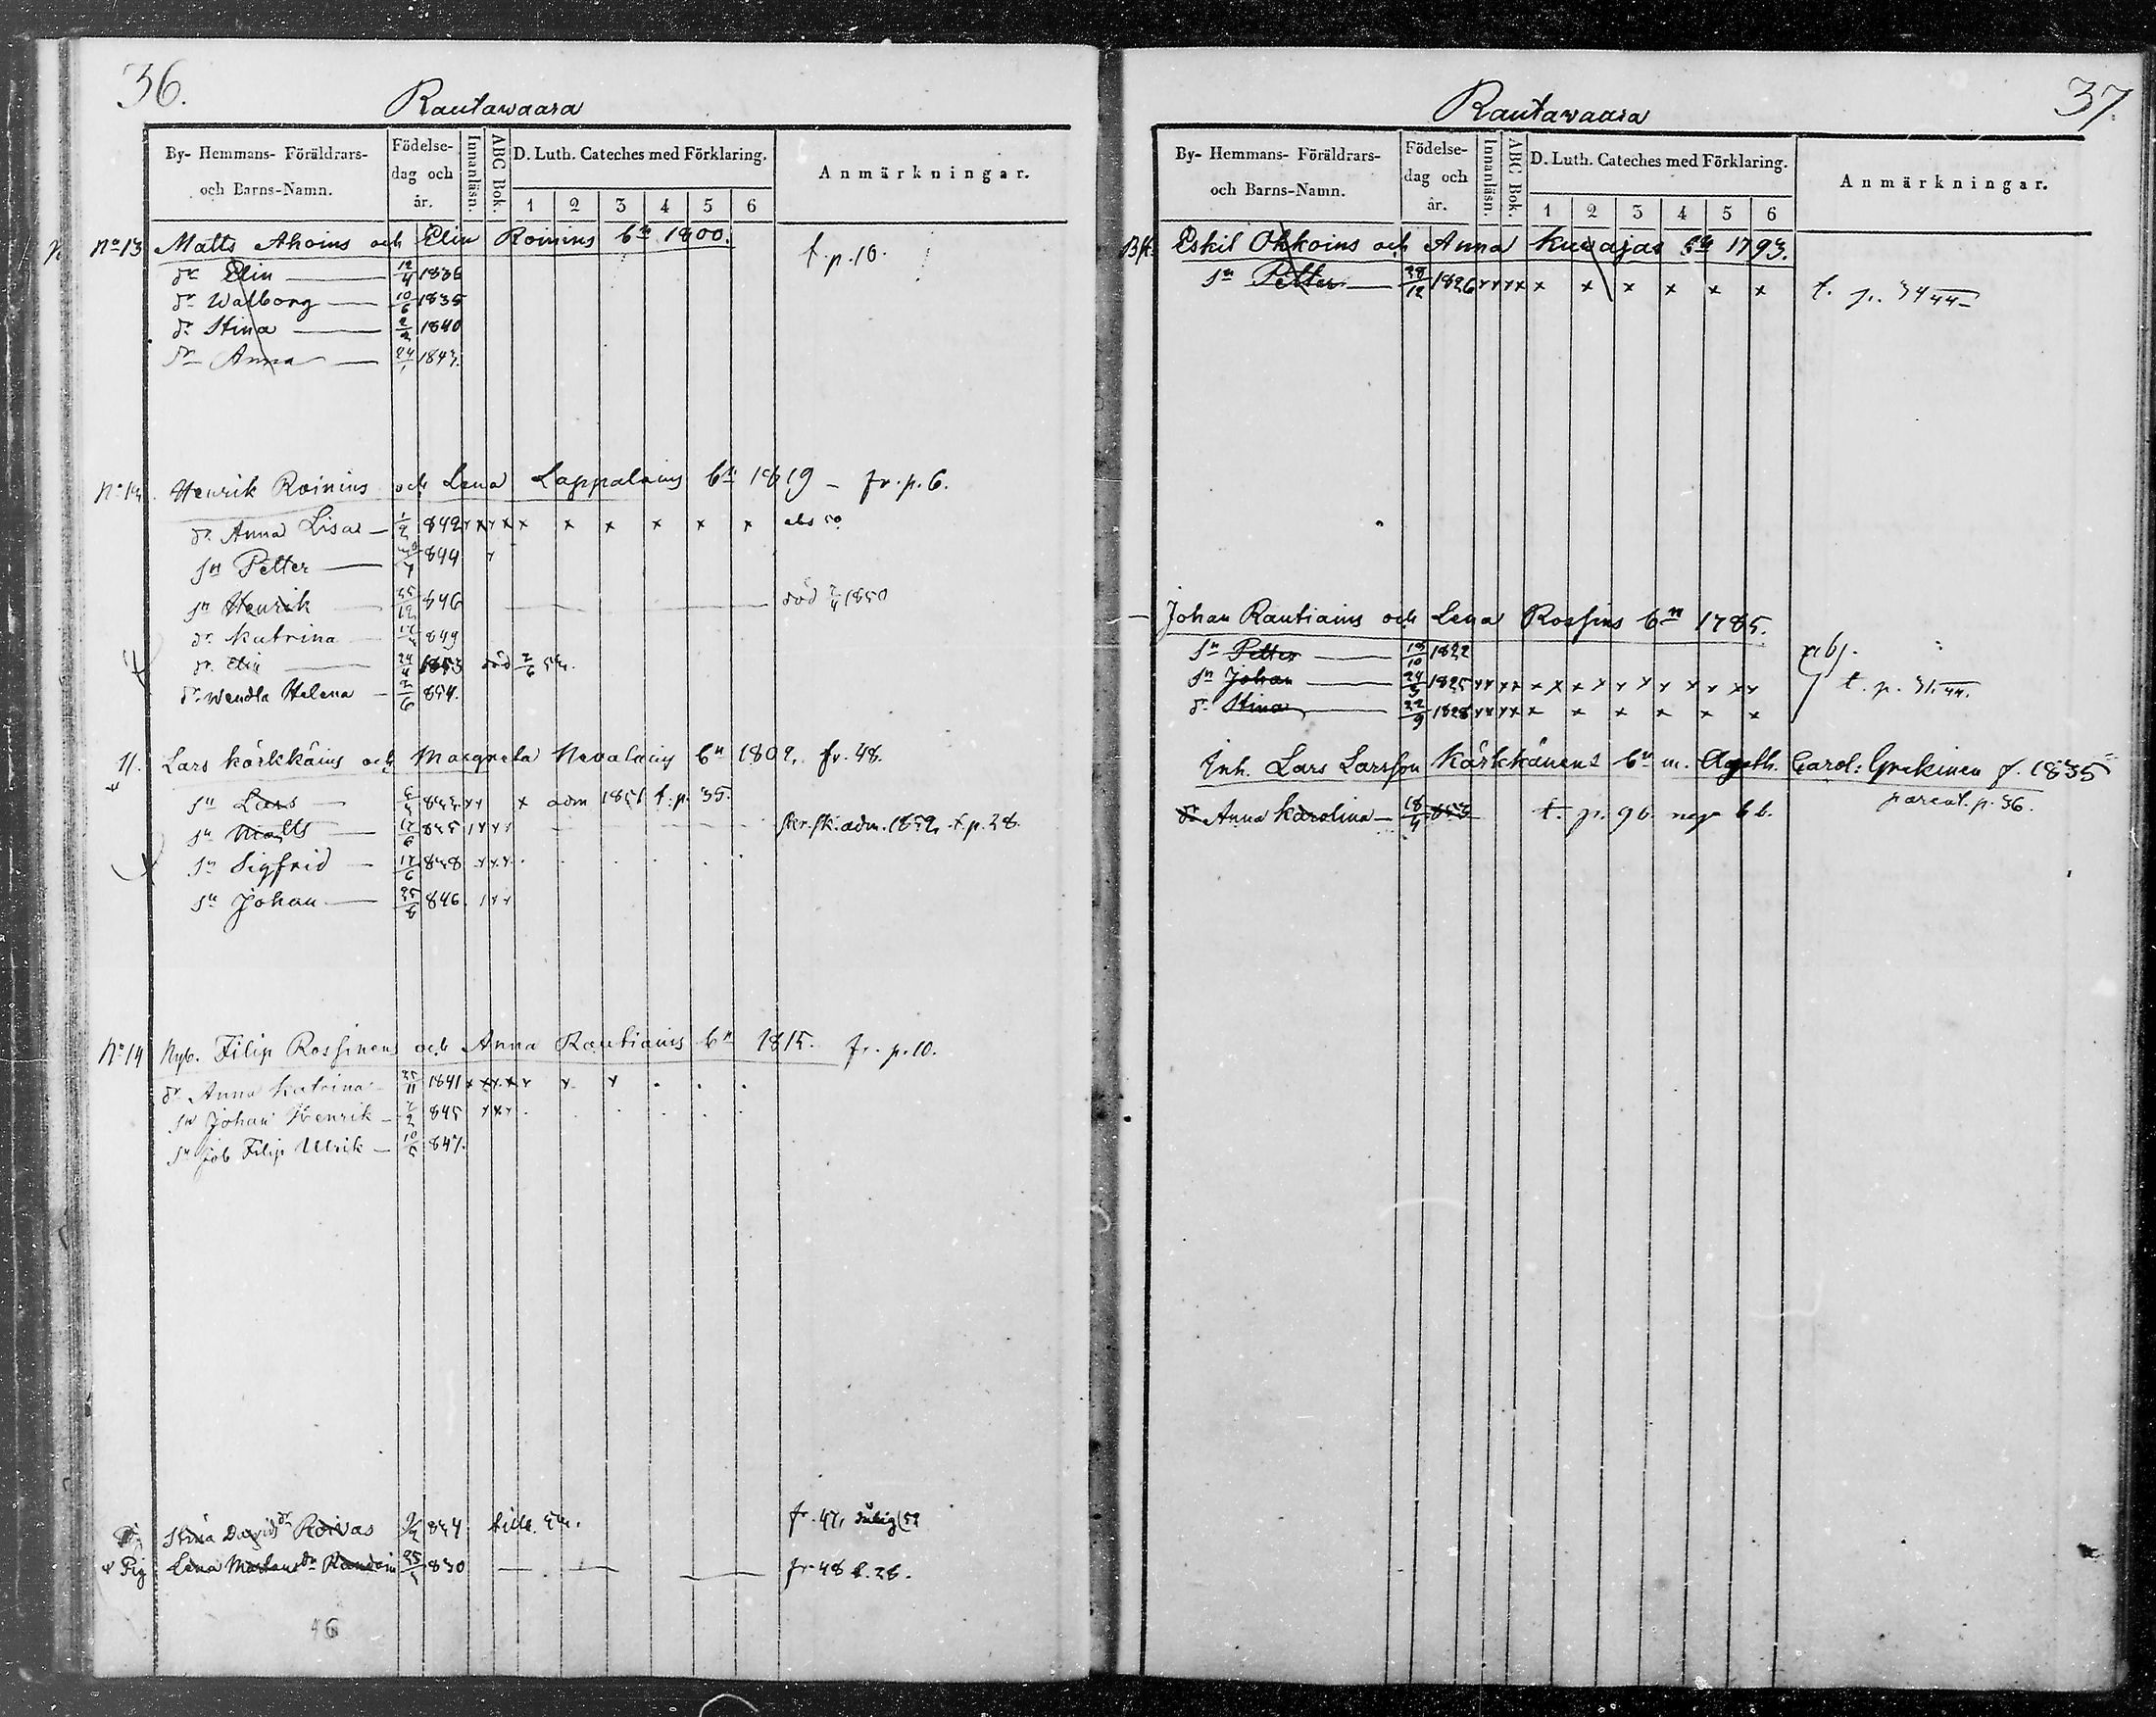 36.
Rautawaara
By- Hemmans- Föräldrars- och Barns-Namn.
Födelse- dag och år.
Innanläsn.
ABC Bok.
D. Luth. Cateches med Förklaring.
1 2 3 4 5 6
Anmärkningar.
No 13 Matts Ahoins och Elin Roinins bn 1800. t p. 10.
dr Elin 12/4 1836
dr Walborg 10/6 1835
dr Stina 2/2 1840
dr Anna 24/1 1843.
Henrik Roinins och Lena Lappalains bn 1819 - fr. p. 6.
dr Anna Lisa 1/2 842 x x x x x x x x x x
sn Petter 844
sn Henrik 25/12 846 död 1850
dr Katrina 849
dr Elin 24/4 1853 död 2/6 54.
dr Wendla Helena 2/6 854.
11. Lars Kärkkäins och Margreta Nevalains bn 1802. fr. 48.
sn Lars x adm 1851 t. p. 35.
sn Matts 17/6 845 skr. sk. adm. 1852. t. p. 28.
sn Sigfrid 17/6 848
sn Johan 25/8 846
No 14 Nyb. Filip Rossinens och Anna Rautiains bn 1815. fr. p. 10.
dr Anna Katrina 25/11 1841
sn Johan Henrik 845
sn Job Filip Ulrik 10/5 847.
Stina Davids dr Roivas 834
Pig Lena Mårtens dr 25 830 fr. 48 t. 28.
37.
Rautawaara
By- Hemmans- Föräldrars- och Barns-Namn.
Födelse- dag och år.
Innanläsn.
ABC Bok.
D. Luth. Cateches med Förklaring.
1 2 3 4 5 6
Anmärkningar.
Eskil Ohkoins och Anna Kuvajas bn 1793.
sn Petter 28/12 1826 x x x x x x t. p. 34 44
Johan Rautiains och Lena Rossins bn 1785.
sn Petter 19/10 1822 abs.
sn Johan 24/3 1825 t. p. 31. 44.
dr Stina 22/9 1828 x x x x x x
Inh. Lars Larsson Kärkkänens bn m. Agath. Carol: f. 1835
p. 36.
dr Anna Karolina 18/4 853 t. p. 96